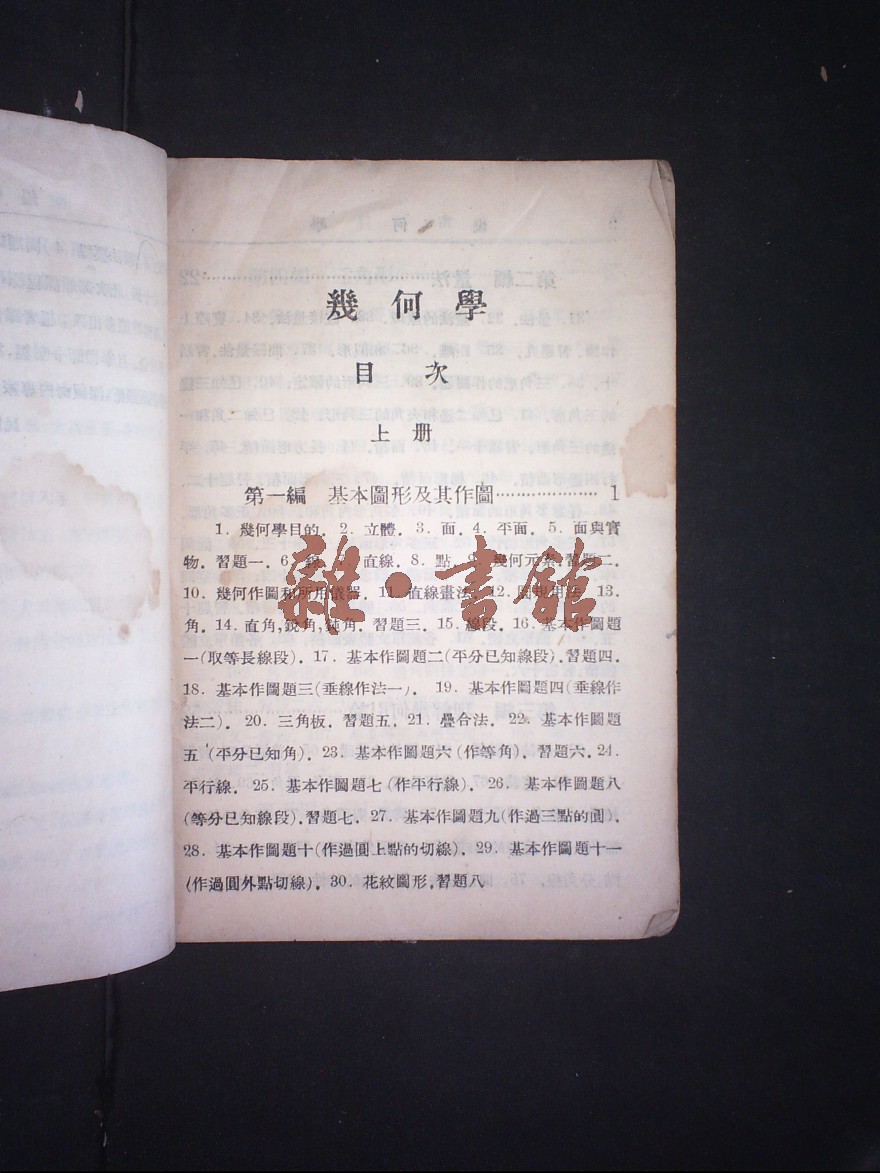 幾何學
目次
上册
第一編 基本圖形及其作圖…………………1
1. 幾何學目的. 2. 立體. 3. 面. 4. 平面. 5. 面與實
物. 習題一. 6. 線. 7. 直線. 8. 點. 9. 幾何元素. 習題二.
10. 幾何作圖和所用儀器. 11. 直線畫法. 12. 圓規用法. 13.
角. 14. 直角,銳角,鈍角. 習題三. 15. 線段. 16. 基本作圖題
一(取等長線段). 17. 基本作圖題二(平分已知線段). 習題四.
18. 基本作圖題三(垂線作法一). 19. 基本作圖題四(垂線作
法二). 20. 三角板. 習題五. 21. 疊合法. 22. 基本作圖題
五(平分已知角). 23. 基本作圖題六(作等角). 習題六. 24.
平行線. 25. 基本作圖題七(作平行線). 26. 基本作圖題八
(等分已知線段). 習題七. 27. 基本作圖題九(作過三點的圓).
28. 基本作圖題十(作過圓上點的切線). 29. 基本作圖題十一
(作過圓外點切線). 30. 花紋圖形,習題八
雜·書館